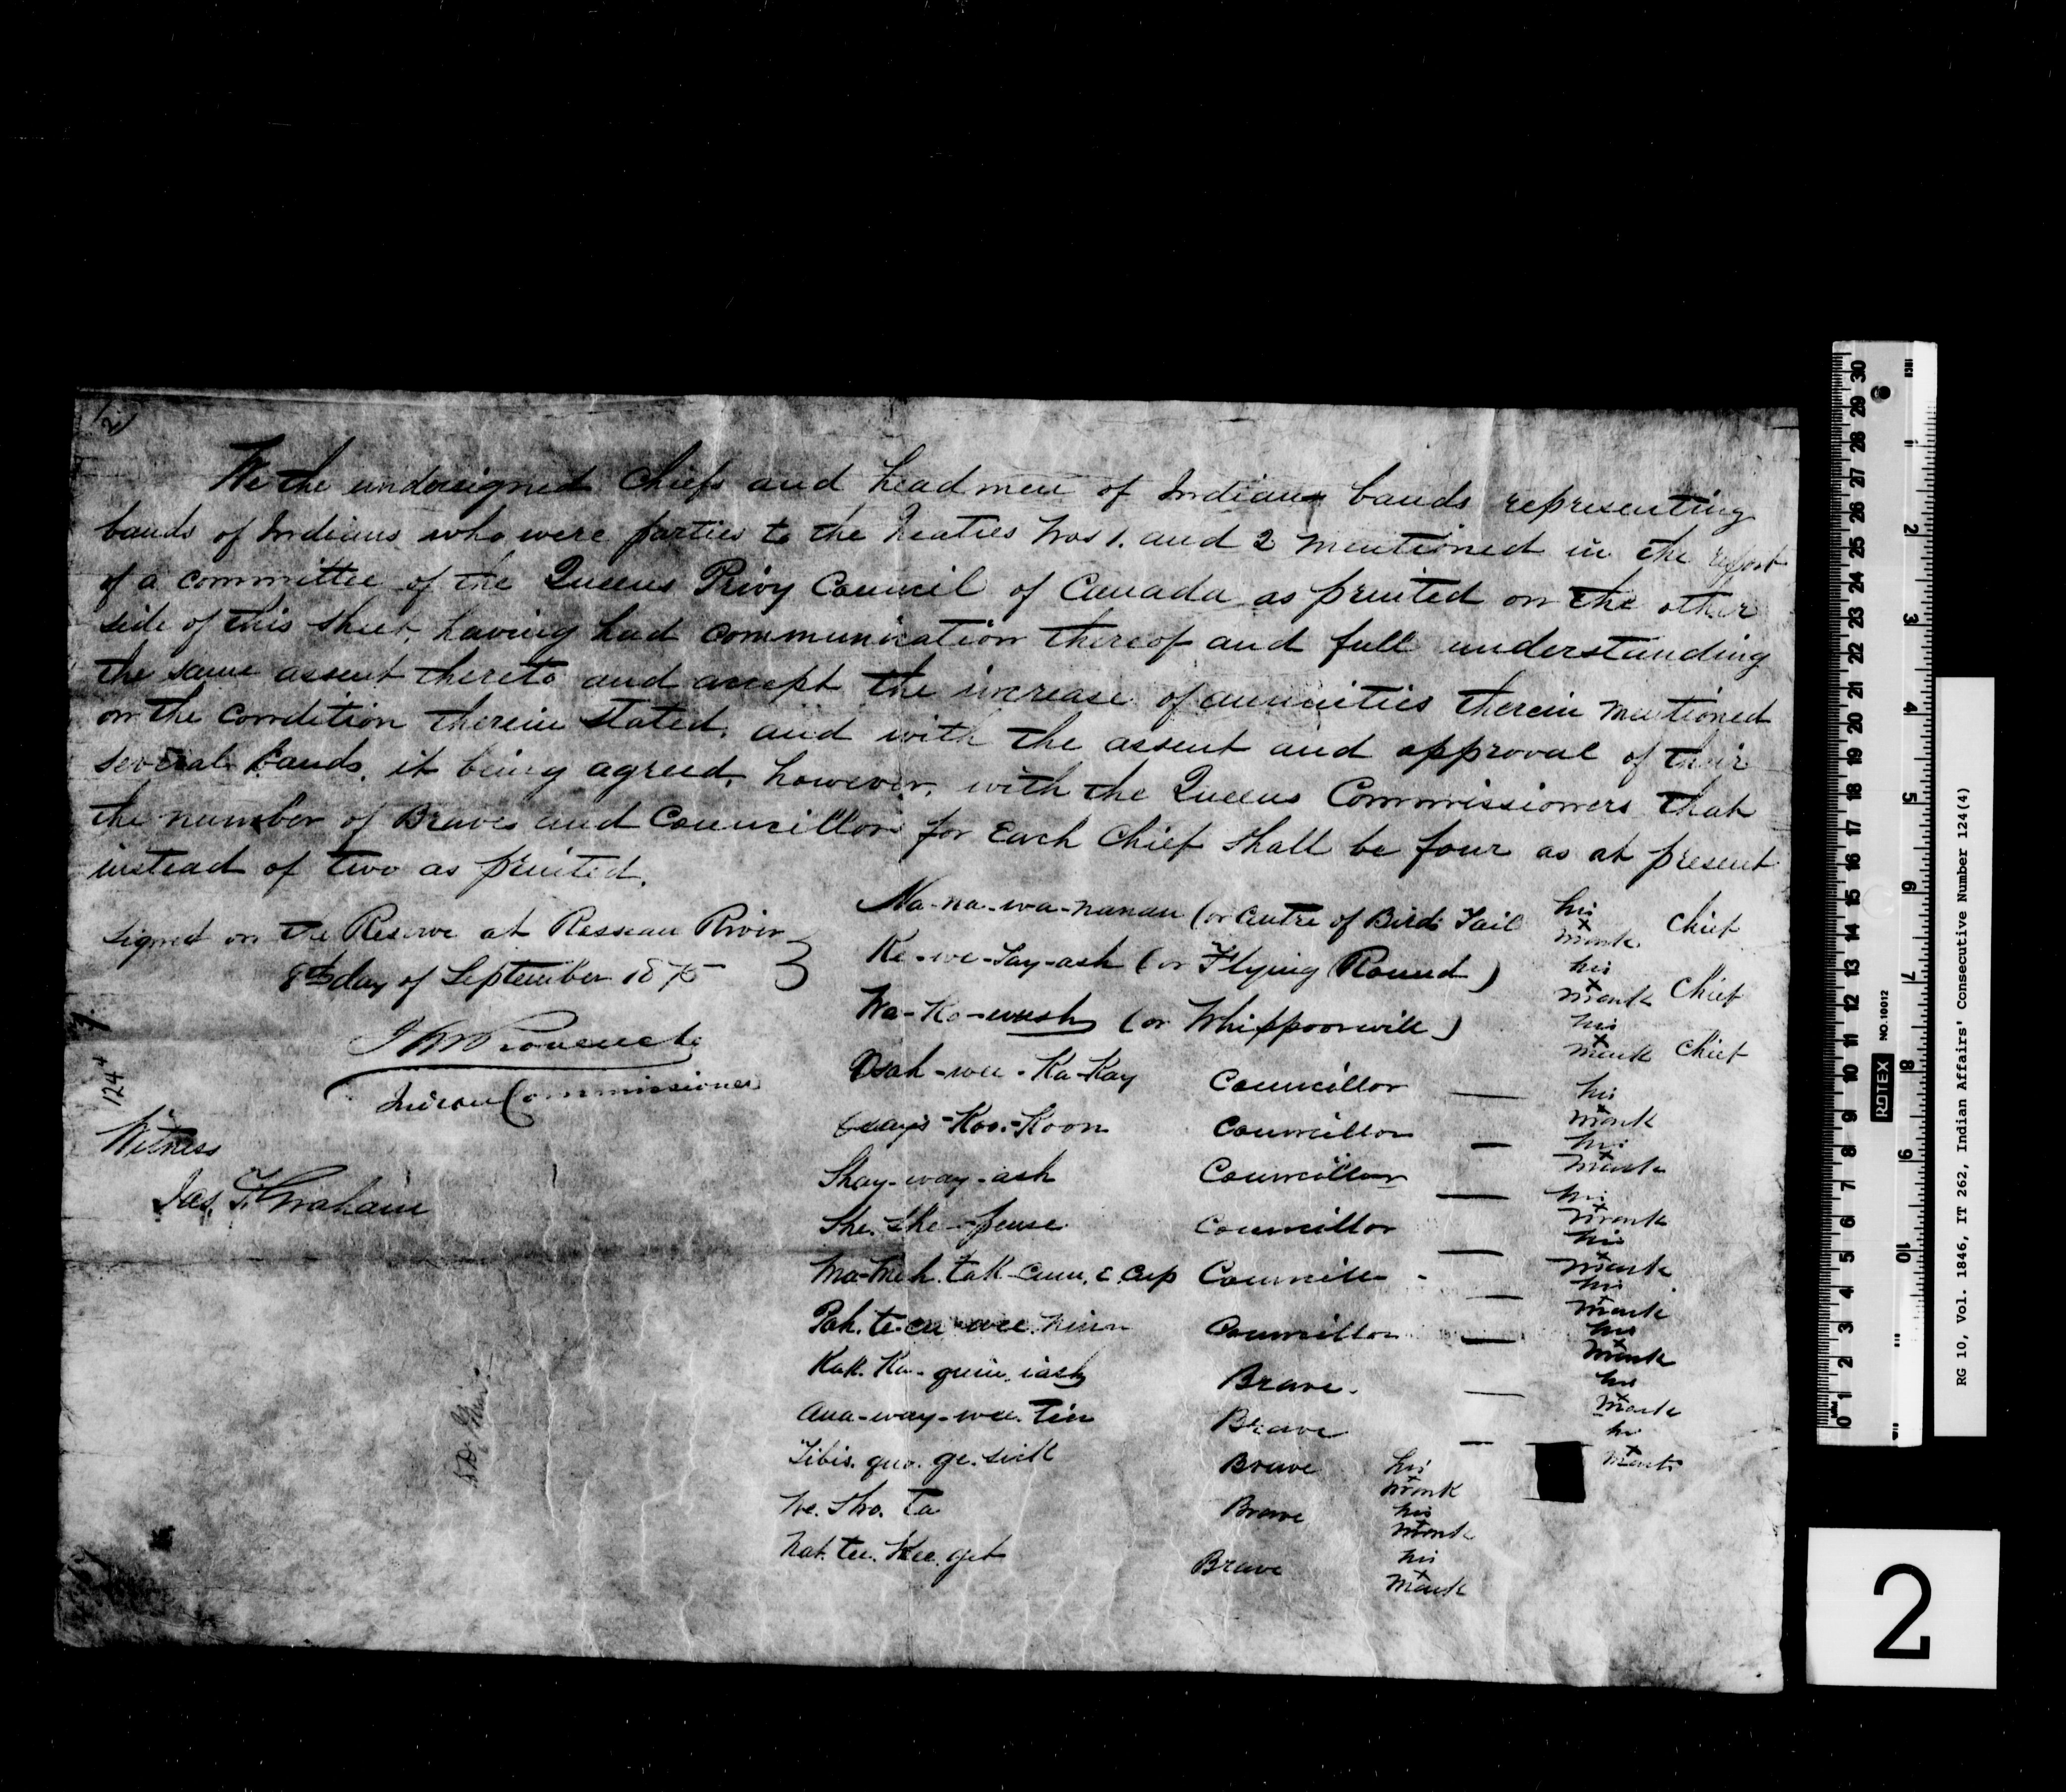 We the undersigned Chiefs and Headmen of Indian bands representing
bands of Indians who were parties to the Treaties Nos 1. and 2 mentioned in the report
of a committee of the Queens Privy Council of Canada as printed on the other
side of this sheet, having had communication thereof and full understanding
the same assent thereto and accept the increase of annuities therein mentioned
on the condition therein stated, and with the assent and approval of their
several bands, it being agreed, however, with the Queens Commissioners that
the number of Braves and Councillors for Each Chief shall be four as at present
instead of two as printed.
Signed on the Reserve at Rosseau River
8th day of September 1875
Indian Commissioner
Witness
Jas. F. Graham
124 4
Na-na-wa-nanan (or Centre of Birds Tail his x mark Chief
Ke-we-tay-ash (or Flying Round) his x mark Chief
Wa-Ko-wush (or Whippoorwill) his x mark Chief
Osah-wee-Ka-Kay Councillor — his x mark
-Koo-Koon Councillor — his x mark
Shay-way-ash Councillor — his x mark
She-she-pense Councillor — his x mark
Councillor — his x mark
Councillor — his x mark
Brave — his x mark
Ana-way-wee-tin Brave — his x mark
Tibis. quo. ge. sick Brave his x mark
Ne. sho. ta Brave his x mark
Nat. tee. kee. get Brave his x mark
ROTEX NO. 10012
0 1 2 3 4 5 6 7 8 9 10 11 12 13 14 15 16 17 18 19 20 21 22 23 24 25 26 27 28 29 30
1 2 3 4 5 6 7 8 9 10 11
RG 10, Vol. 1846, IT 262, Indian Affairs' Consecutive Number 124(4)
2